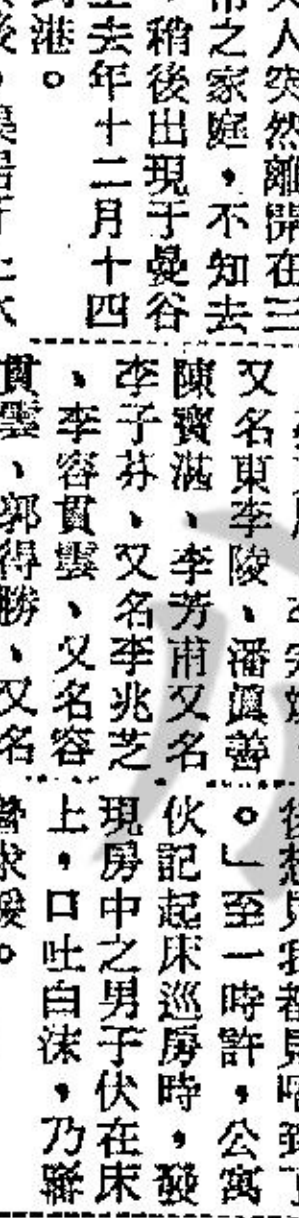 人突然離開在三
之家庭，不知去
稍後出現于曼谷
去年十二月十四
港。
又名東李陵、潘眞善
陳寶滿、李芳甫又名
李子芬、又名李兆芝
、李容貫雲、又名容
貫雲、郭得勝、又名
。」至一時許，公寓
伙記起床巡房時，發
現房中之男子伏在床
上，口吐白沫，乃
求援。